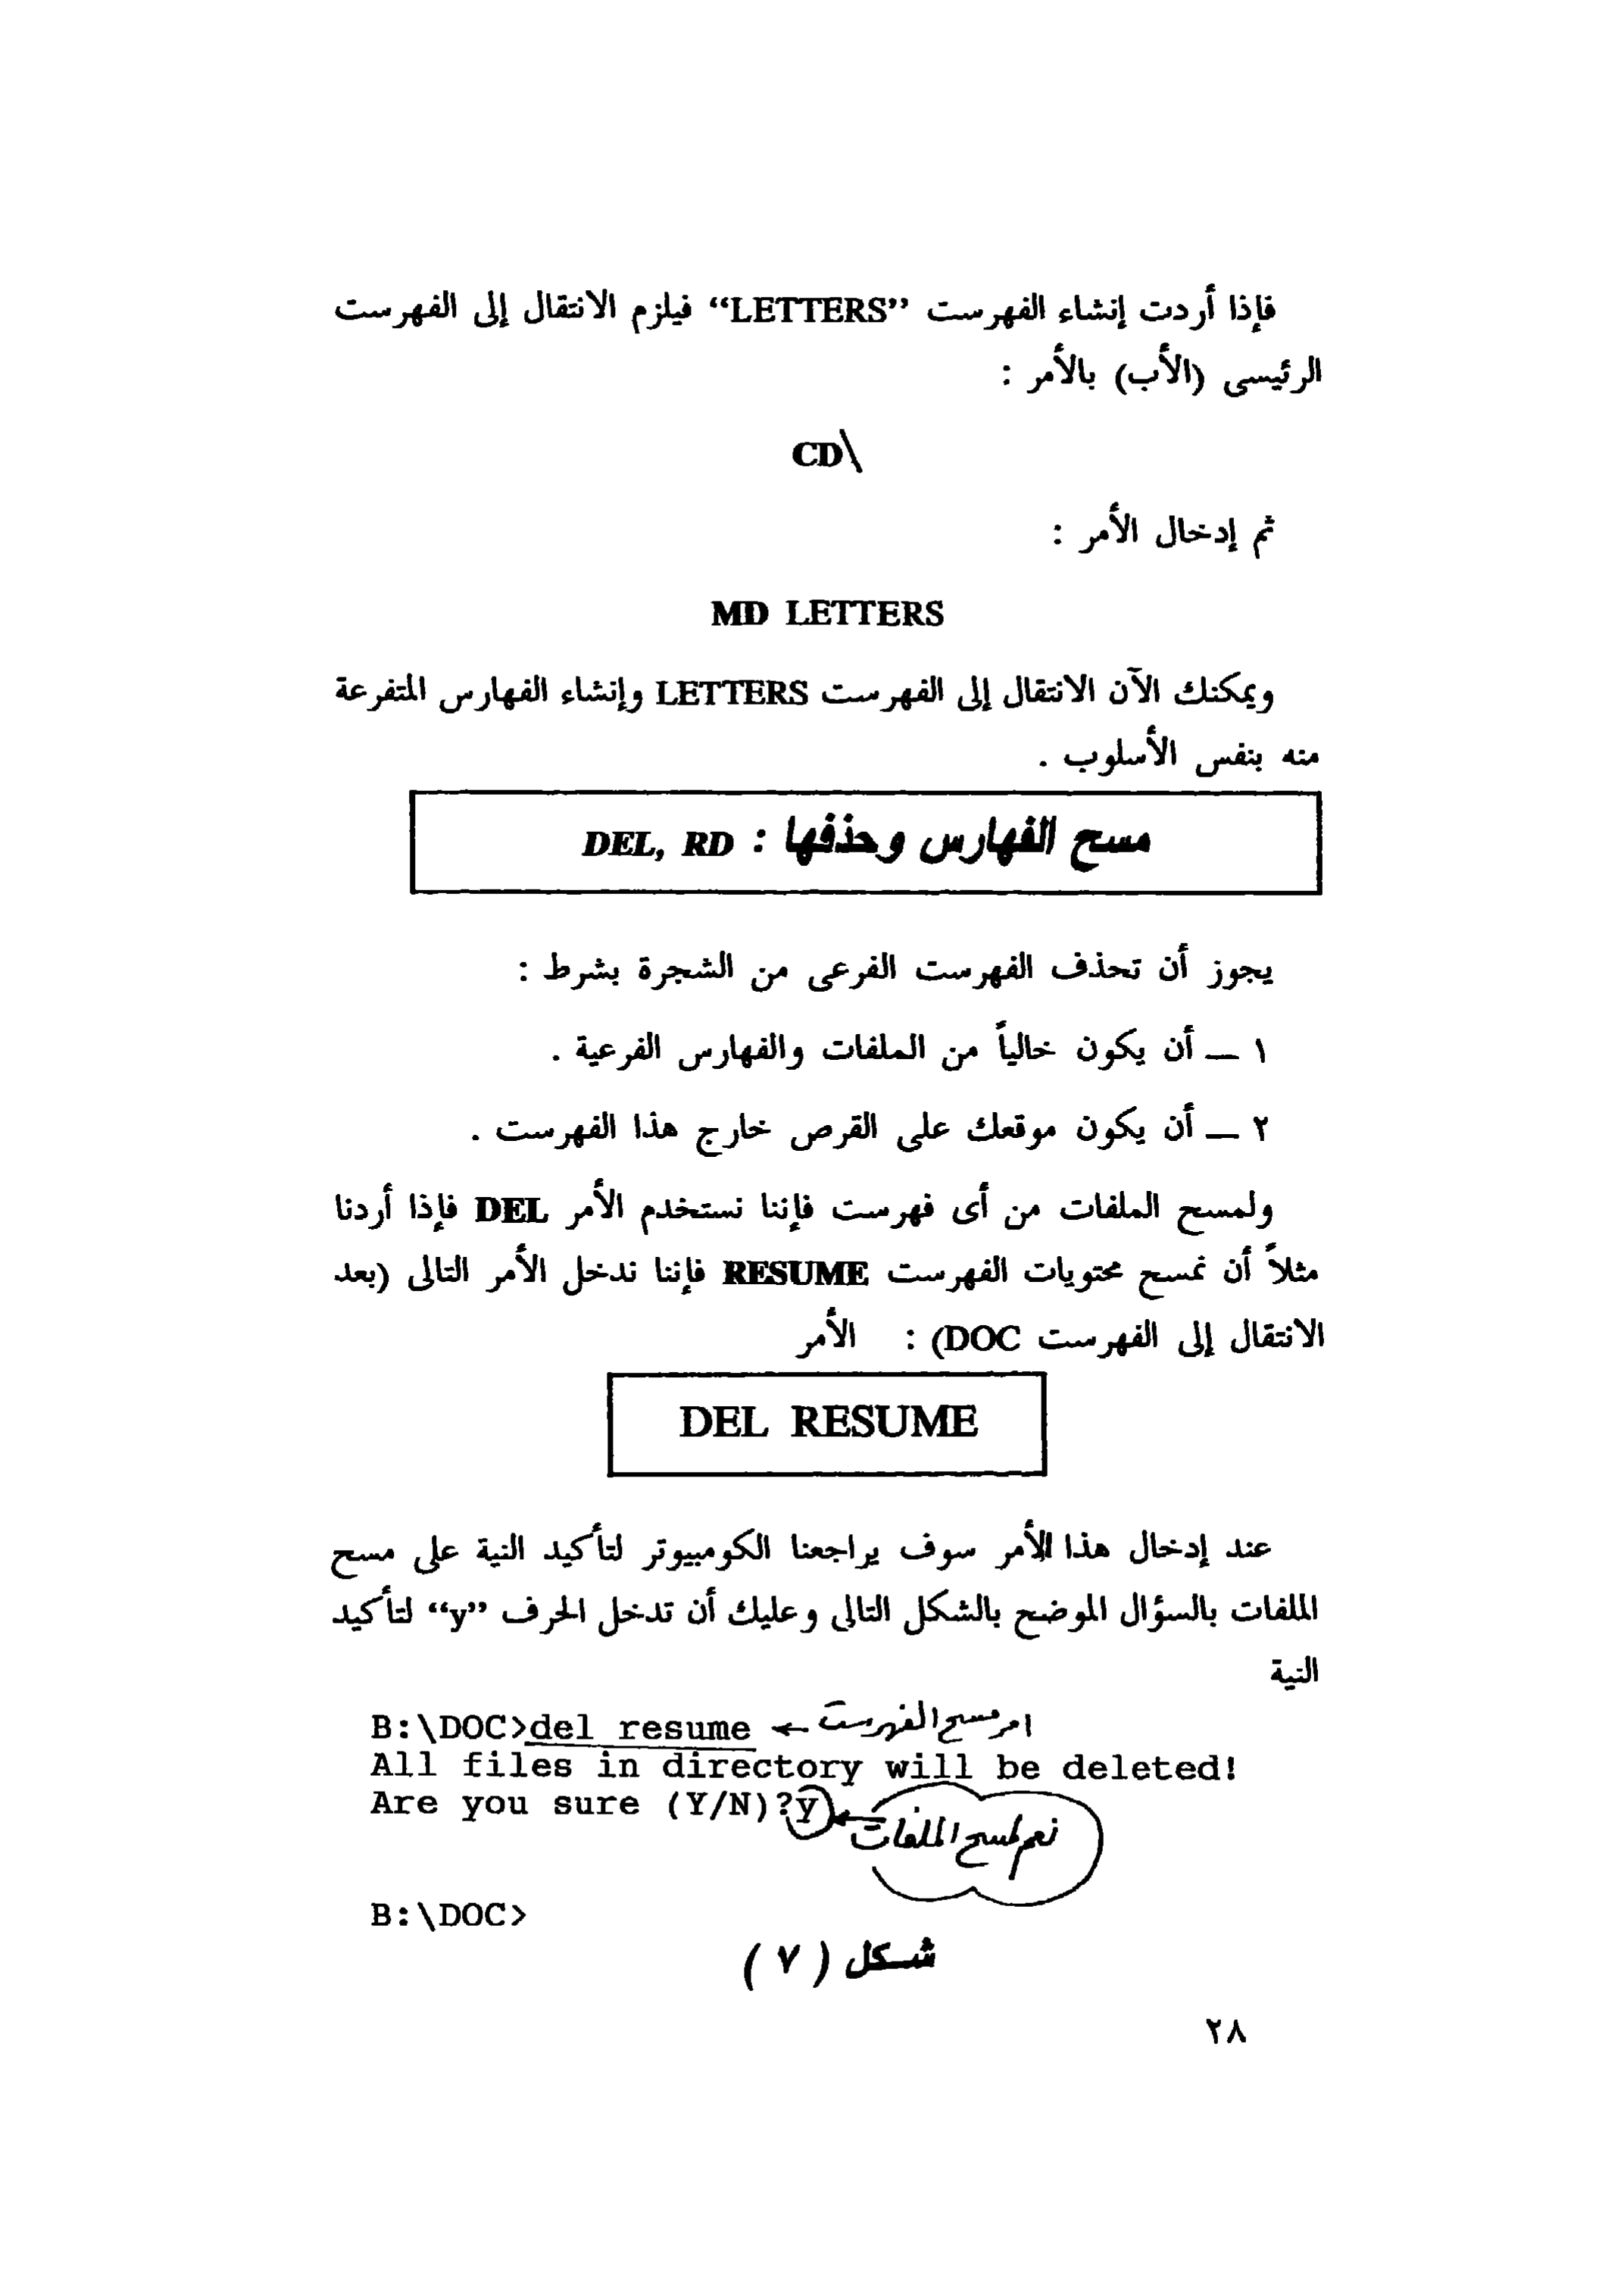 فإذا أردت إنشاء الفهرست “LETTERS” فيلزم الانتقال إلى الفهرست
الرئيسى (الأب) بالأمر :
CD\
ثم إدخال الأمر :
MD LETTERS
ويمكنك الآن الانتقال إلى الفهرست LETTERS وإنشاء الفهارس المتفرعة
منه بنفس الأسلوب .
مسح الفهارس وحذفها : DEL, RD
يجوز أن تحذف الفهرست الفرعى من الشجرة بشرط :
١ — أن يكون خالياً من الملفات والفهارس الفرعية .
٢ — أن يكون موقعك على القرص خارج هذا الفهرست .
ولمسح الملفات من أى فهرست فإننا نستخدم الأمر DEL فإذا أردنا
مثلاً أن نمسح محتويات الفهرست RESUME فإننا ندخل الأمر التالى (بعد
الانتقال إلى الفهرست DOC) : الأمر
DEL RESUME
عند إدخال هذا الأمر سوف يراجعنا الكومبيوتر لتأكيد النية على مسح
الملفات بالسؤال الموضح بالشكل التالى وعليك أن تدخل الحرف “y” لتأكيد
النية
B:\DOC>del resume ← امر مسح الفهرست
All files in directory will be deleted!
Are you sure (Y/N)?y ← نعم لمسح الملفات
B:\DOC>
شكل ( ٧ )
٢٨